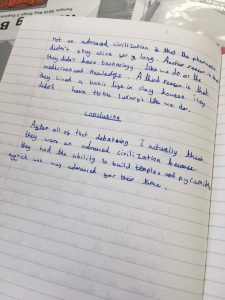 not an advanced civilization is that the pharaohs
didn't stay alive for long. Another reason is that
they didn't have technology like we do or the
medicine and knowledge. A third reason is that
they lived a basic life in clay houses. They
didn't have the luxury's like we do.
Conclusion
After all of that debateing I actually think
they were an advanced civilization because
they had the ability to build temples and pyramids
which was advanced for their time.